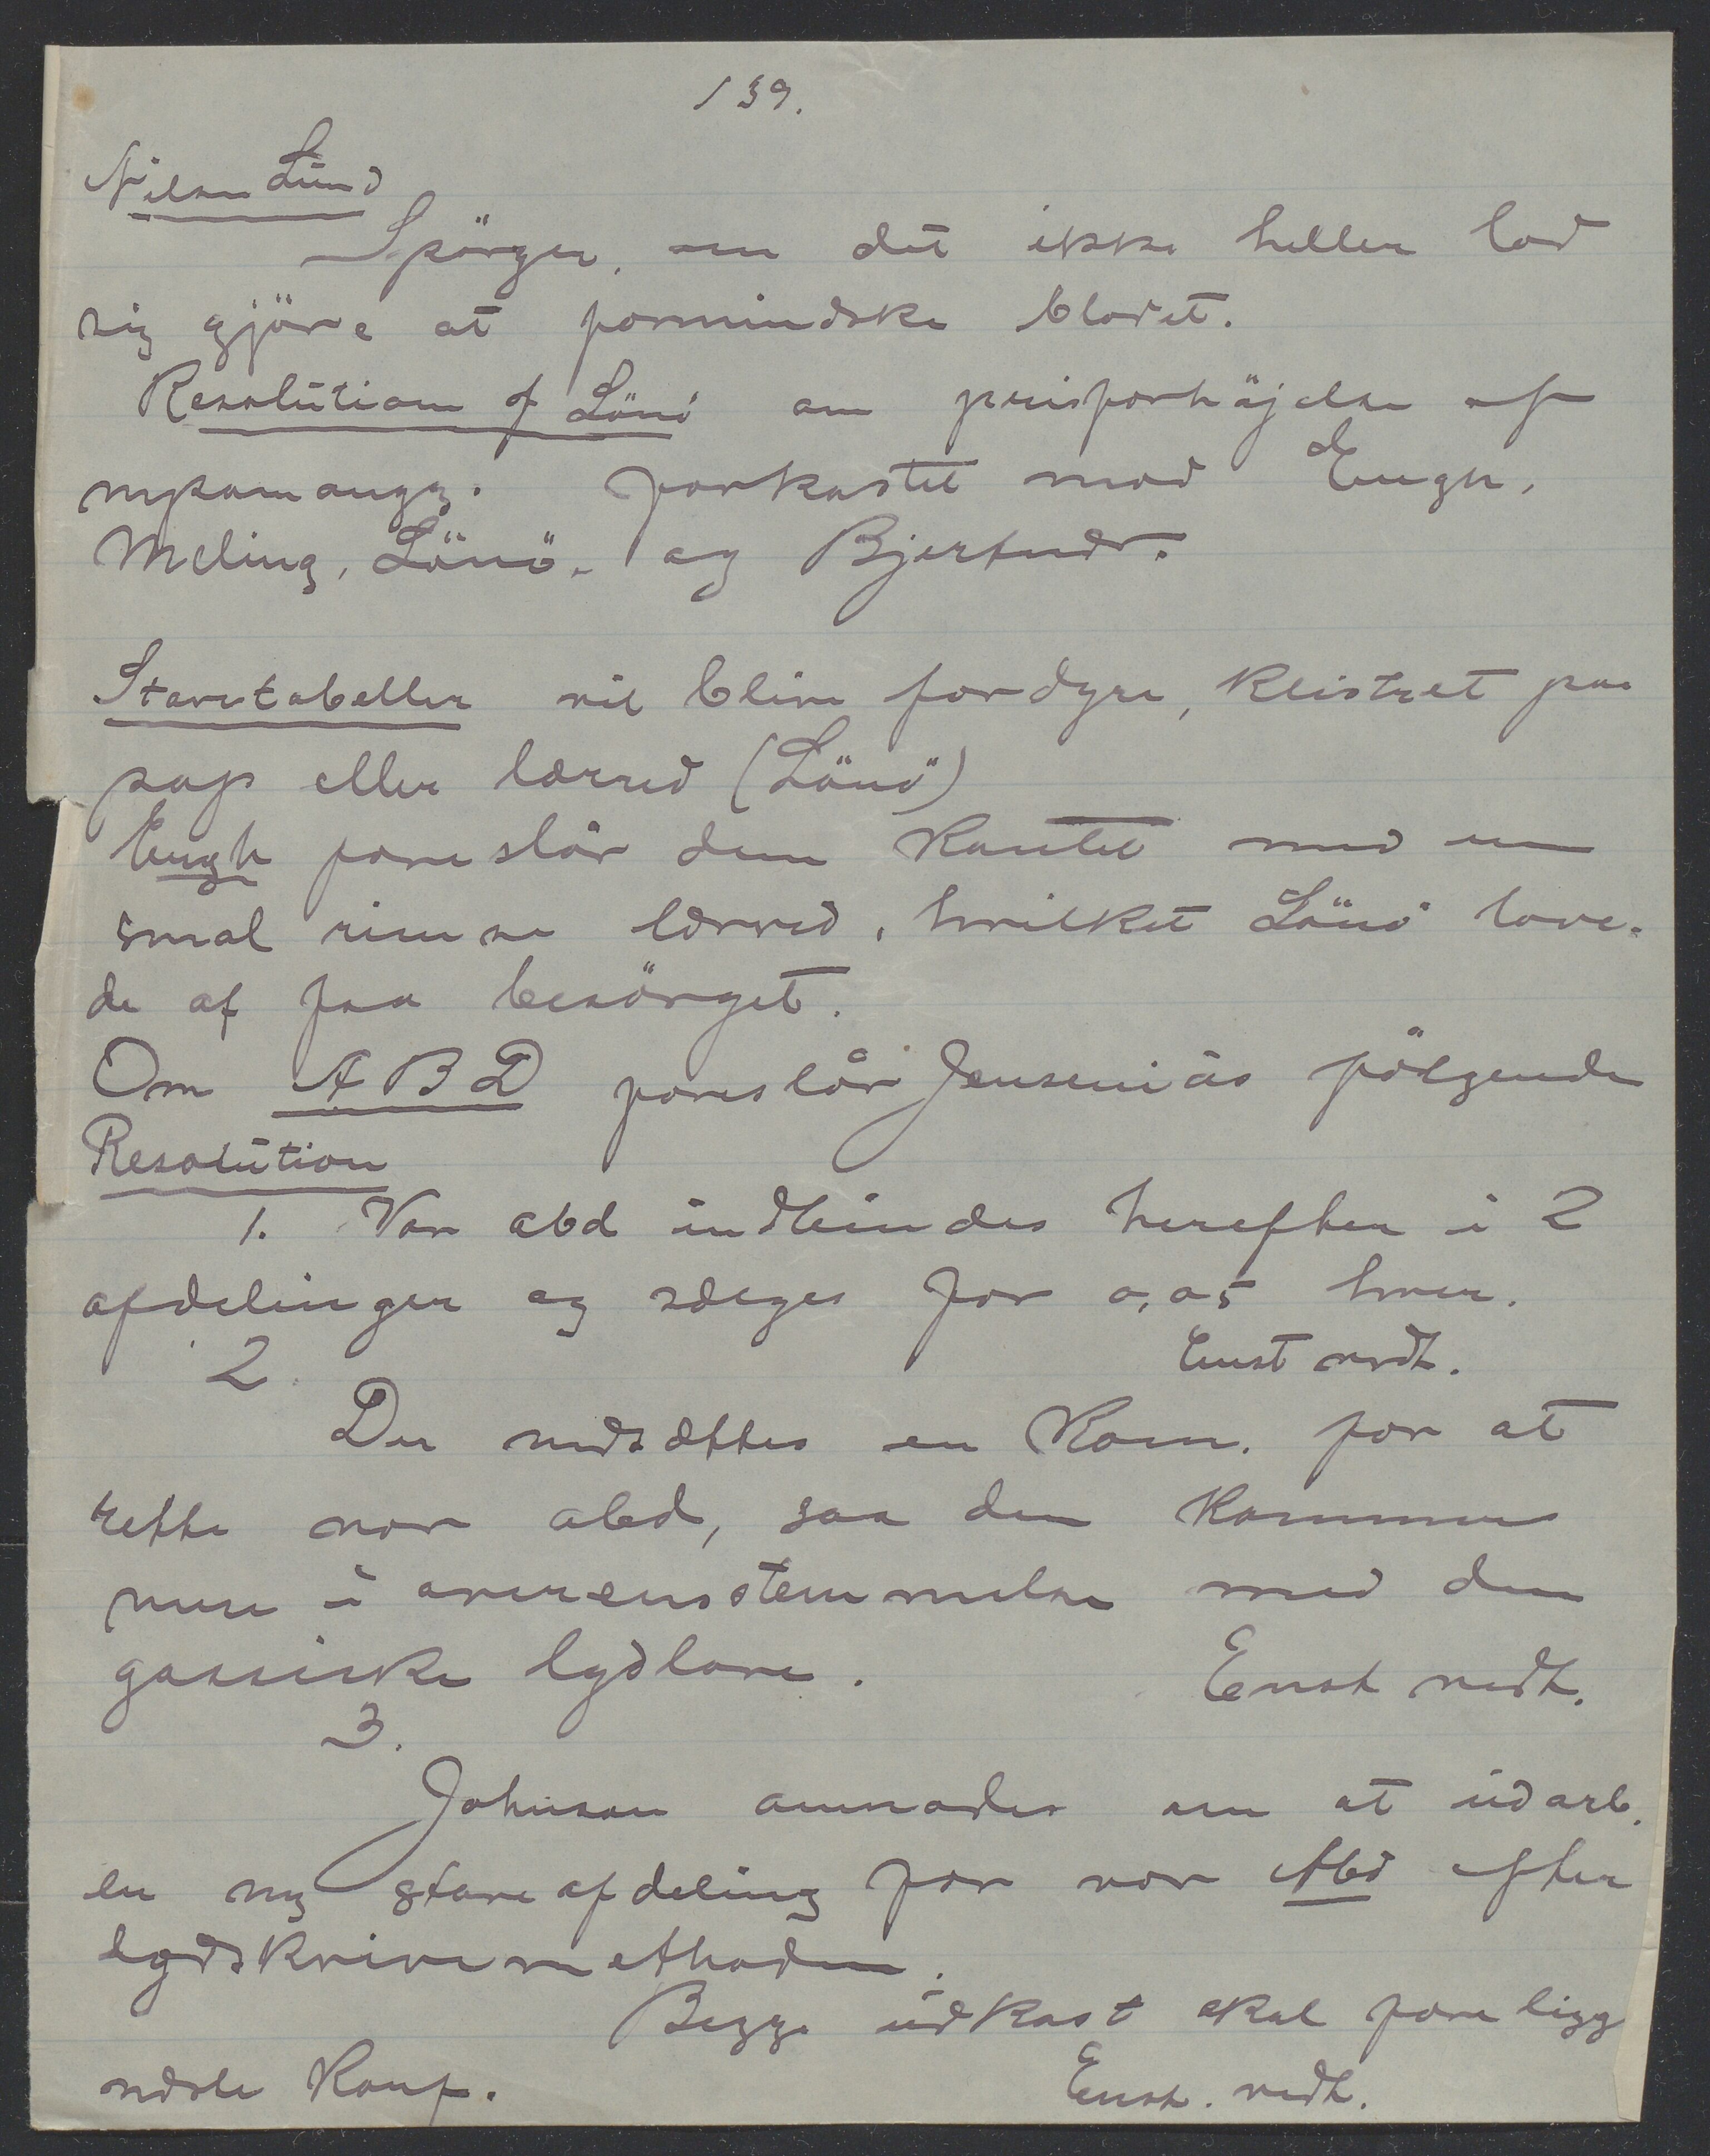 139.
Nilsen Lund
Spörger, om det ikke heller lod
sig gjöre at formindske bladet.
Resolution af Lönö om prisforhöjelse af
mpamangg. forkastet mod Engh,
Meling, Lönö. og Bjerkndr.
Stavetabeller vil blive for dyre, klistret paa
pap eller lærred (Lönö)
Engh foreslår dem kantet med en
smal rimse lærred, hvilket Lönö love-
de at faa besörget.
Om ABD foreslår Jensenius fölgende
Resolution
1. Vor abd indbindes herefter i 2
afdelinger og sælges for 0,05 hver.
2. Enst vedt.
Der nedsættes en Kom. for at
rette vor abd, saa den kommer
mere i overensstemmelse med den
gassiske lydlove.
Enst vedt.
3.
Johnson anmodes om at udarb.
en ny staveafdeling for vor Abd efter
lydskrivemethoden.
Begge udkast skal foreligg
næste Konf. Enst. vedt.